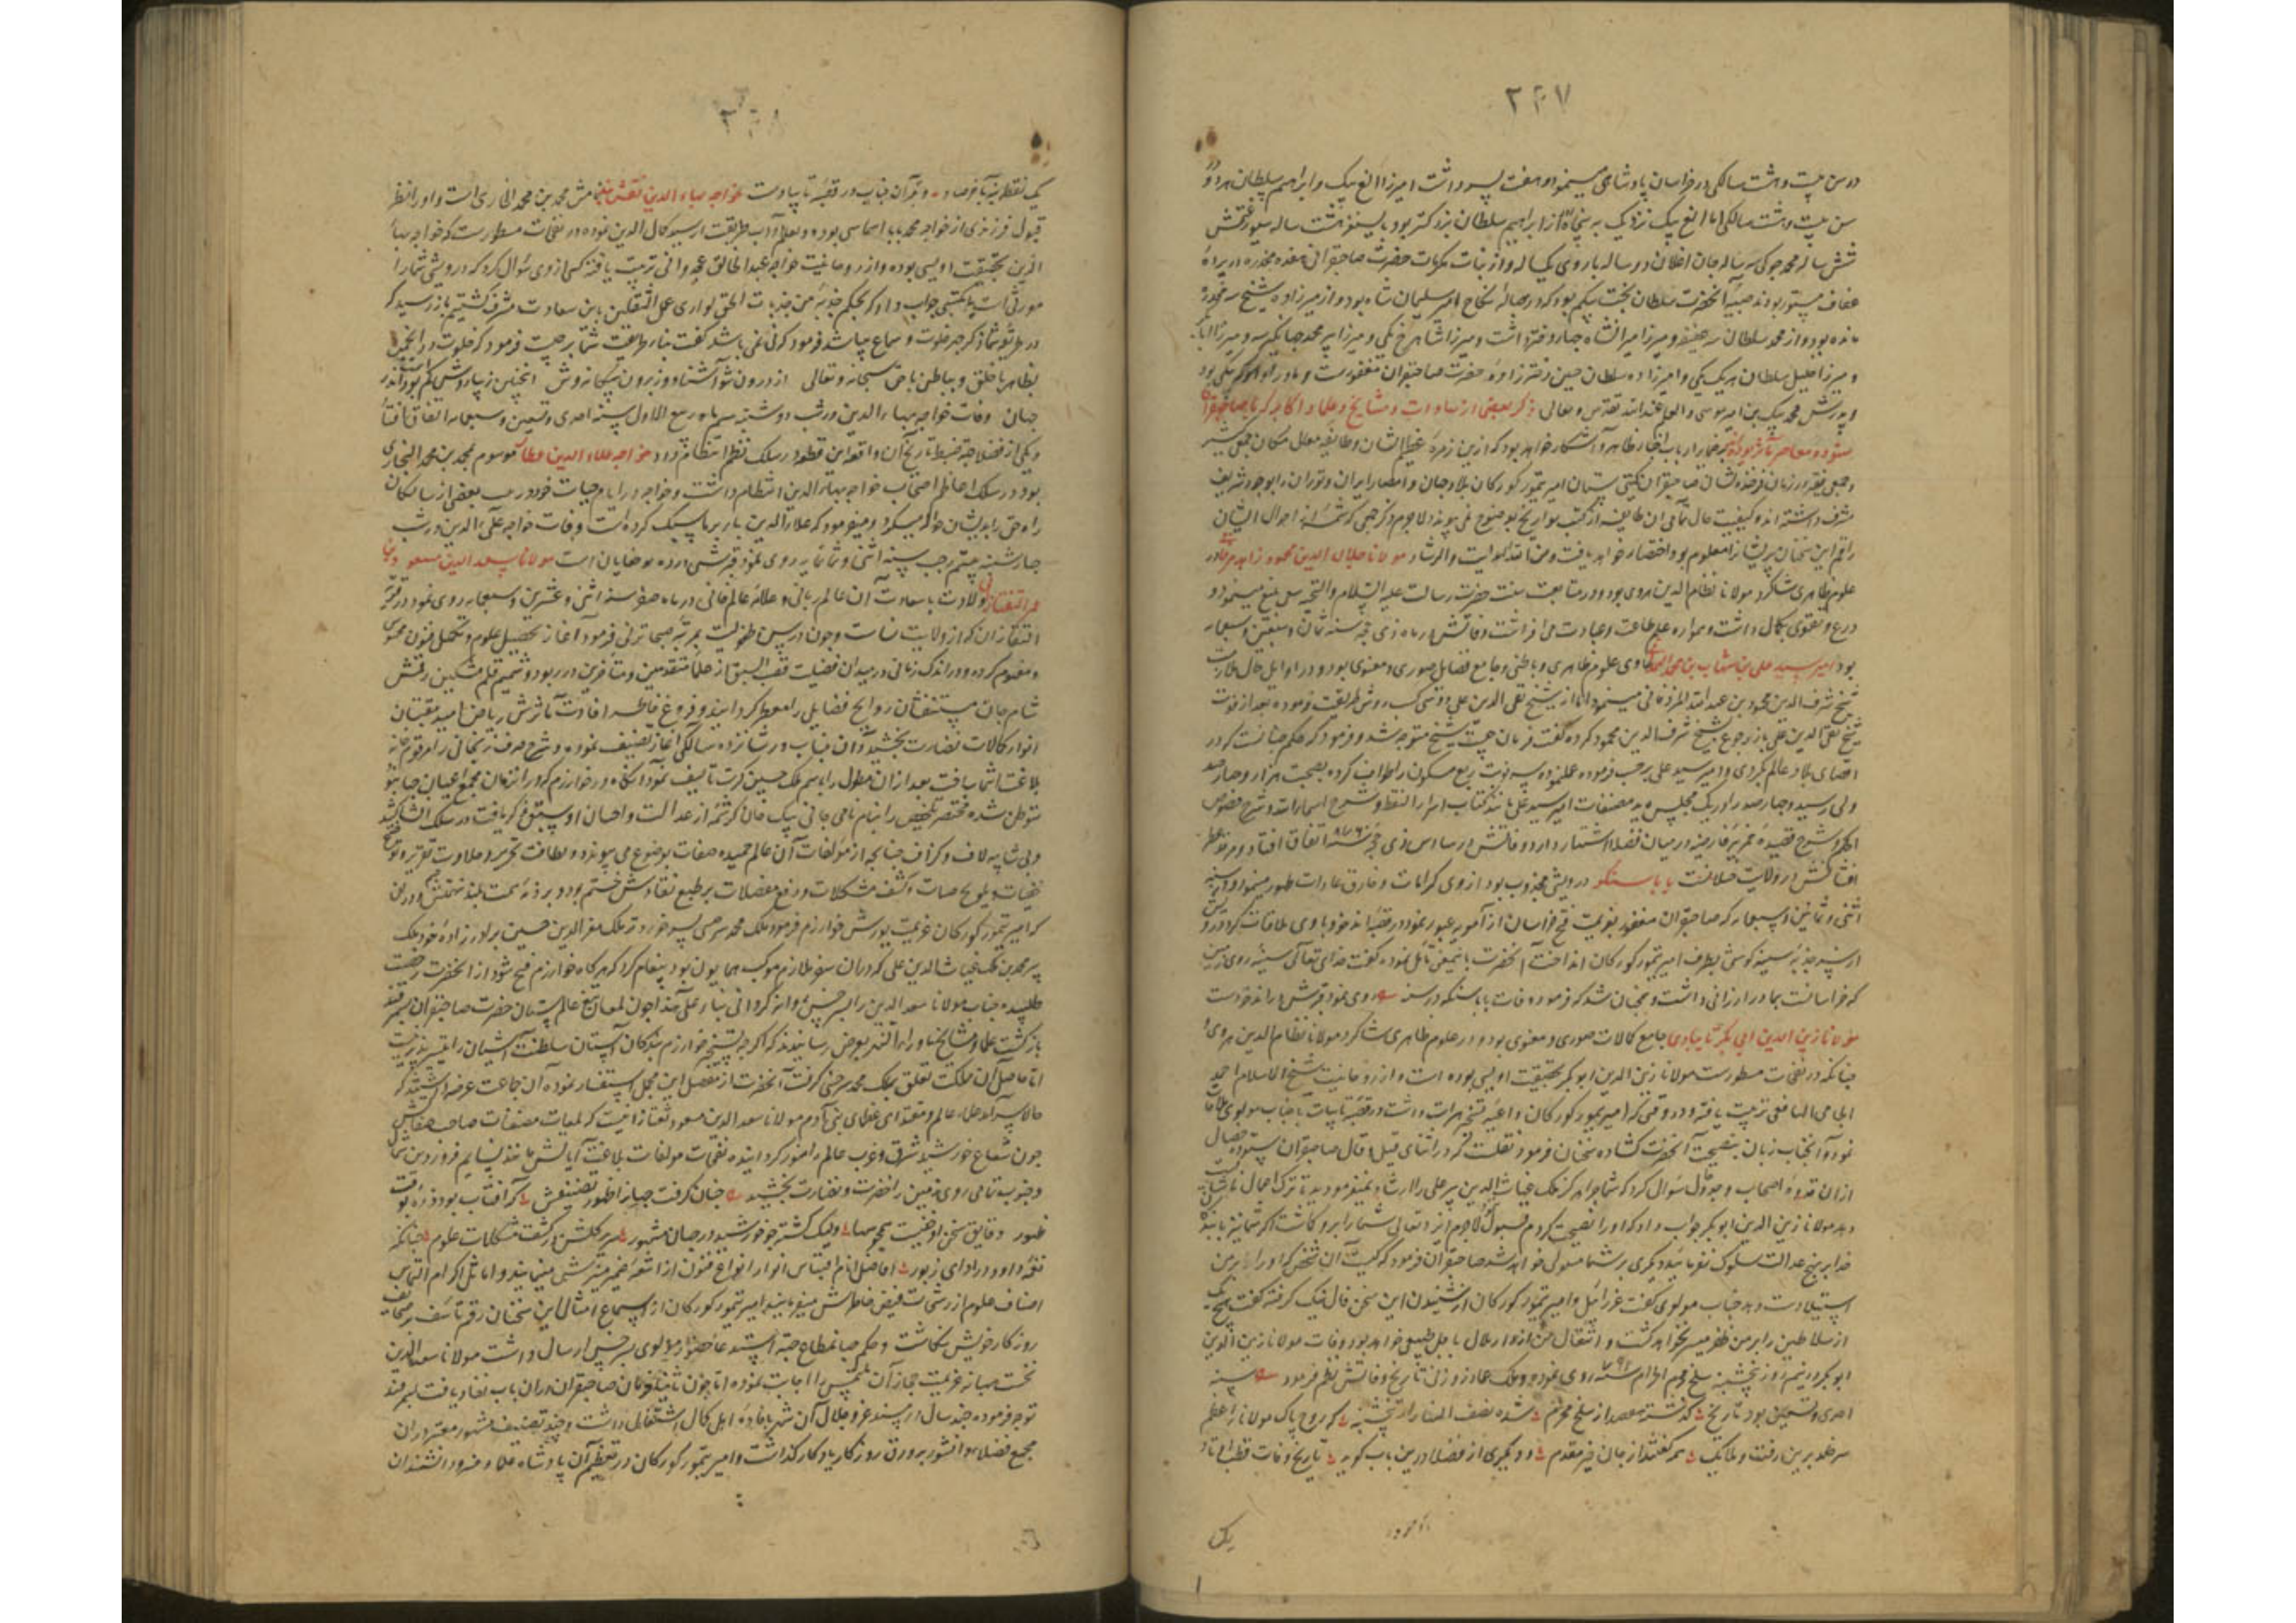 ۲۴۷
در سن بیست و هشت سالگی در خراسان پادشاهی مینمود و هفت پسر داشت امیرزا الغ بیک و ابراهیم سلطان هر دو
سن بیست و هشت سالگی اما الغ بیک نزدیک به پنجاه از ابراهیم سلطان بزرگتر بود بایسنغر هشت ساله سیورغتمش
شش ساله محمد جوکی سه ساله جان اغلان دو ساله باروی یکساله و از بنات مکرمات حضرت صاحبقرانی هفده مخدره در پرده
عفاف مستور بودند صبیه آنحضرت سلطان بخت بیکم بود که در حباله نکاح امیر سلیمان شاه بود و از میرزاده
مانده بود و از محمد سلطان سه و میرزا امیرانشاه چهار دختر داشت و میرزا شاهرخ یکی و میرزا پیر محمد جهانگیر سه و میرزا
و میرزا خلیل سلطان هر یک یکی و امیرزاده سلطان حسین دخترزاده حضرت صاحبقران مغفورست و مادر او
و پدرش محمد بیک بن امیر موسی والعلم عند الله تقدس و تعالی ذکر بعضی از سادات و مشایخ و علما و اکابر که با صاحبقران
ستوده معاصر بوده‌اند بر ضمایر ارباب اخبار ظاهر و آشکار خواهد بود که ازین زمره عظیم الشان و طایفه معلی مکان جمعی کثیر
و جمعی غفیر در زمان فرخنده نشان صاحبقران گیتی ستان امیر تیمور کورکان بلاد جهان و امصار ایران و توران را بوجود شریف
مشرف داشته‌اند و کیفیت حال تمامی آن طایفه از کتب تواریخ بوضوح نمی پیوندد لاجرم ذکر جمعی که شمه از احوال ایشان
راقم این سخنان پریشان را معلوم بود اختصار خواهد یافت و من الله الهدایت و الرشاد مولانا جلال الدین محمود زاهد مرغابی در
علوم ظاهری شاکرد مولانا نظام الدین هروی بود و در متابعت سنت حضرت رسالت علیه السلام و التحیه سعی بلیغ مینمود و
ورع و تقوی بکمال داشت و همواره علم طاعت و عبادت می افراشت وفاتش در ماه ذی حجه سنه ثمان و سبعین و سبعمایه
بود امیر سید علی بن شهاب بن محمد الهمدانی حاوی علوم ظاهری و باطنی و جامع فضایل صوری و معنوی بود و در اوایل حال ملازمت
شیخ شرف الدین محمود بن عبدالله المزدقانی مینمود اما از شیخ تقی الدین علی دوستی کسب روش طریقت فرموده بعد از فوت
شیخ تقی الدین علی باز رجوع بشیخ شرف الدین محمود کرده گفت فرمان چیست شیخ متوجه شد و فرمود که حکم چنانست که در
اقصای بلاد عالم بگردی و امیر سید علی بر حسب فرموده عمل نموده سه نوبت ربع مسکون را طواف کرده بصحبت هزار و چهارصد
ولی رسید و چهارصد را در یک مجلس دید مصنفات امیر سید علی مانند کتاب اسرار النقطه و شرح اسماء الله و شرح فصوص
الحکم و شرح قصیده خمریه فارضیه در میان فضلا اشتهار دارد و وفاتش در سادس ذی حجه سنه ۷۸۶ اتفاق افتاد و مرقد معطر
بابا سنکو درویشی مجذوب بود از وی کرامات و خارق عادات ظهور مینمود و در سنه
اثنی و ثمانین و سبعمایه که صاحبقران مغفور بعزیمت فتح خراسان از آمویه عبور نمود در قصبه اندخود با وی ملاقات کرد درویش
از سر جذبه سینه گوسفندی بطرف امیر تیمور کورکان انداخت آنحضرت باینمعنی تفأل نموده گفت خدای تعالی سینه روی زمین
که خراسانست بما ارزانی داشت و همچنان شد که فرمود وفات بابا سنکو در سنه روی نمود قبرش در اندخودست
مولانا زین الدین ابی بکر تایبادی جامع کمالات صوری و معنوی بود و در علوم ظاهری شاکرد مولانا نظام الدین هروی و
چنانکه در نفحات مسطورست مولانا زین الدین ابوبکر بحقیقت اویسی بوده است و از روحانیت شیخ الاسلام احمد
الجامی النامقی تربیت یافته و در وقتی که امیر تیمور کورکان داعیه فتح هرات داشت در قصبه تایباد با جناب مولوی ملاقات
نمود و آنجناب زبان بنصیحت آنحضرت گشاده سخنان فرمود نقلست که در اثنای قیل و قال صاحبقران ستوده خصال
از آن قدوه اصحاب وجد و حال سوال کرد که شما چرا ملک غیاث الدین پیر علی را ارشاد نمیفرمودید تا ترک اعمال ناشایست
دهد مولانا زین الدین ابوبکر جواب داد که او را نصیحت کردم قبول نکرد لاجرم ایزد تعالی شما را برو کماشت اگر شما نیز بندگان
خدا بر نهج عدالت سلوک نفرمائید دیگری بر شما مستولی خواهد شد صاحبقران فرمود که کیست آن شخص که او را بر من
استیلا دست دهد جناب مولوی گفت عزرائیل و امیر تیمور کورکان از شنیدن این سخن فال نیک گرفته گفت هیچ یک
از سلاطین را بر من ظفر میسر نخواهد گشت و انتقال من از دار ملال باجل طبیعی خواهد بود وفات مولانا زین الدین
ابوبکر در نیم روز پنجشنبه سلخ محرم الحرام سنه ۷۹۱ روی نمود و ملک عماد زوزنی تاریخ وفاتش نظم فرمود سنه
احدی و تسعین بود تاریخ گذشته هفصد از سلخ محرم شده نصف النهار از پنجشنبه که روح پاک مولانای اعظم
سوی خلد برین رفت و ملایک همه گفتند از جان خیر مقدم و دیگری از فضلا درین باب گوید تاریخ وفات قطب اوتاد
یک
۲۴۸
یک نقطه بنه باخر صاد و قبر آن جناب در قصبه تایبادست خواجه بهاء الدین نقشبند نامش محمد بن محمد البخاری است و او را نظر
قبول فرزندی از خواجه محمد بابا سماسی بوده و تعلم آداب طریقت از سید کلال الدین نموده در نفحات مسطورست که خواجه بهاء
الدین بحقیقت اویسی بوده و از روحانیت خواجه عبد الخالق غجدوانی تربیت یافته کسی از وی سوال کرد که درویشی شما را
موروثی است یا مکتسبی جواب داد که بحکم جذبة من جذبات الحق توازی عمل الثقلین باین سعادت مشرف گشتیم باز پرسید که
در طریق شما ذکر جهر و خلوت و سماع میباشد فرمود که نمی باشد گفت بنای طریقت شما بر چیست فرمود که خلوت در انجمن
بظاهر با خلق و بباطن با حق سبحانه و تعالی از درون شو آشنا و ز برون بیگانه وش اینچنین زیبا روش کم می بود اندر
جهان وفات خواجه بهاء الدین در شب دوشنبه سیم ماه ربیع الاول سنه احدی و تسعین و سبعمایه اتفاق افتاد
و یکی از فضلا جهة ضبط تاریخ آن واقعه این قطعه در سلک نظم انتظام داد خواجه علاء الدین عطار موسوم بمحمد بن محمد البخاری
بود و در سلک اعاظم اصحاب خواجه بهاء الدین انتظام داشت و خواجه در ایام حیات خود تربیت بعضی از سالکان
راه حق را بدیشان حواله میکرد و میفرمود که علاء الدین بار بر ما سبک کرده است وفات خواجه علاء الدین در شب
چهارشنبه بیستم رجب سنه اثنی و ثمانمایه روی نمود قبرش در ده نو چغانیان است مولانا سعد الدین مسعود بن
عمر التفتازانی ولادت با سعادت آن عالم ربانی و علامه عالم فانی در ماه صفر سنه اثنی و عشرین و سبعمایه روی نمود در قریه
التفتازان که از ولایت نساست و چون در سن طفولیت بمرتبه صبا ترقی فرمود آغاز تحصیل علوم و تکمیل فنون محسوس
و مفهوم کرده و در اندک زمانی در میدان فضیلت قصب السبق از علماء متقدمین و متاخرین در ربود و شمیم قلم مشکین رقمش
مشام جان مستنشقان روایح فضایل را معطر گردانید و فروغ خاطر افادت مآثرش ریاض امید مقتبسان
انوار کمالات نضارت بخشید و آن جناب در شانزده سالگی آغاز تصنیف نموده و شرح صرف زنجانی را مرقوم خامه
بلاغت انتما ساخت بعد از آن مطول را باسم ملک حسین کرت تالیف نمود آنگاه در خوارزم که در آن زمان مجمع اعیان جهان بود
متوطن شده مختصر تلخیص را بنام نامی جانی بیک خان که شمه از عدالت و احسان او سبق ذکر یافت در سلک انشا کشید
و بی شایبه لاف و گزاف چنانچه از مولفات آن عالم حمیده صفات بوضوح می پیوندد و لطافت تحریر و حلاوت تقریر و توضیح
خفیات و تلویح صفات و کشف مشکلات و رفع معضلات بر طبع نقادش ختم بود و بر ذمه همت بلند نهمتش و در آن حین
که امیر تیمور کورکان عزیمت یورش خوارزم فرمود ملک محمد سرخسی پسر خرد تر ملک معز الدین حسین برادرزاده خود ملک
پیر محمد بن ملک غیاث الدین علی که در آن سفر ملازم موکب همایون بود پیغام کرد که هرگاه خوارزم فتح شود از آنحضرت رخصت
طلبیده جناب مولانا سعد الدین را بسرخس روانه گردانی بناء علی هذا چون لمعان تیغ عالم ستان حضرت صاحبقران سمرقند
بازگشت علما و مشایخ ماوراء النهر بعرض رسانیدند که اگر چه بتسخیر خوارزم بندگان آستان سلطنت آشیان را تیسیر پذیرفت
اما حاصل آن مملکت تعلق بملک محمد سرخسی گرفت آنحضرت از تفصیل این مجمل استفسار نموده آن جماعت عرضه داشتند که
حالا سرآمد علماء عالم و مقتدای فضلای بنی آدم مولانا سعد الدین مسعود تفتازانیست که لمعات مصنفات
چون شعاع خورشید شرق و غرب عالم را منور گردانیده نفحات مولفات بلاغت آیاتش مانند نسایم فروردین شمال
و جنوب تمامی روی زمین را خضرت و نضارت بخشید چنان گرفت جهان را ظهور تصنیفش که آفتاب بود ذره بوقت
ظهور دقایق سخن او خفیست همچو سها ولیک گشته چو خورشید در جهان مشهور صریر کلکش در کشف مشکلات علوم چنانکه
نغمه داود در ادای زبور افاضل انام اقتباس انوار انواع فنون از اشعه ضمیر منیرش مینمایند و اماثل کرام التماس
اصناف علوم از رشحات فیض خاطرش میفرمایند امیر تیمور کورکان از استماع امثال این سخنان رقم تاسف بر صحایف
روزگار خویش نگاشت و حکم جهانمطاع جهة استدعا حضور مولوی بسرخس ارسال داشت مولانا سعد الدین
نخست بهانه عزیمت حجاز آن ملتمس را اجابت ننموده اما چون ثانیا فرمان صاحبقران در آن باب نفاذ یافت بسمرقند
توجه فرموده چند سال در مسند عز و جلال آن شهر بافاده اهل کمال اشتغال داشت و چند تصنیف مشهور معتبر در آن
مجمع فضلاء دانشور بر ورق روزگار یادگار گذاشت و امیر تیمور کورکان در تعظیم آن پادشاه علما و هنروران و دانشمندان